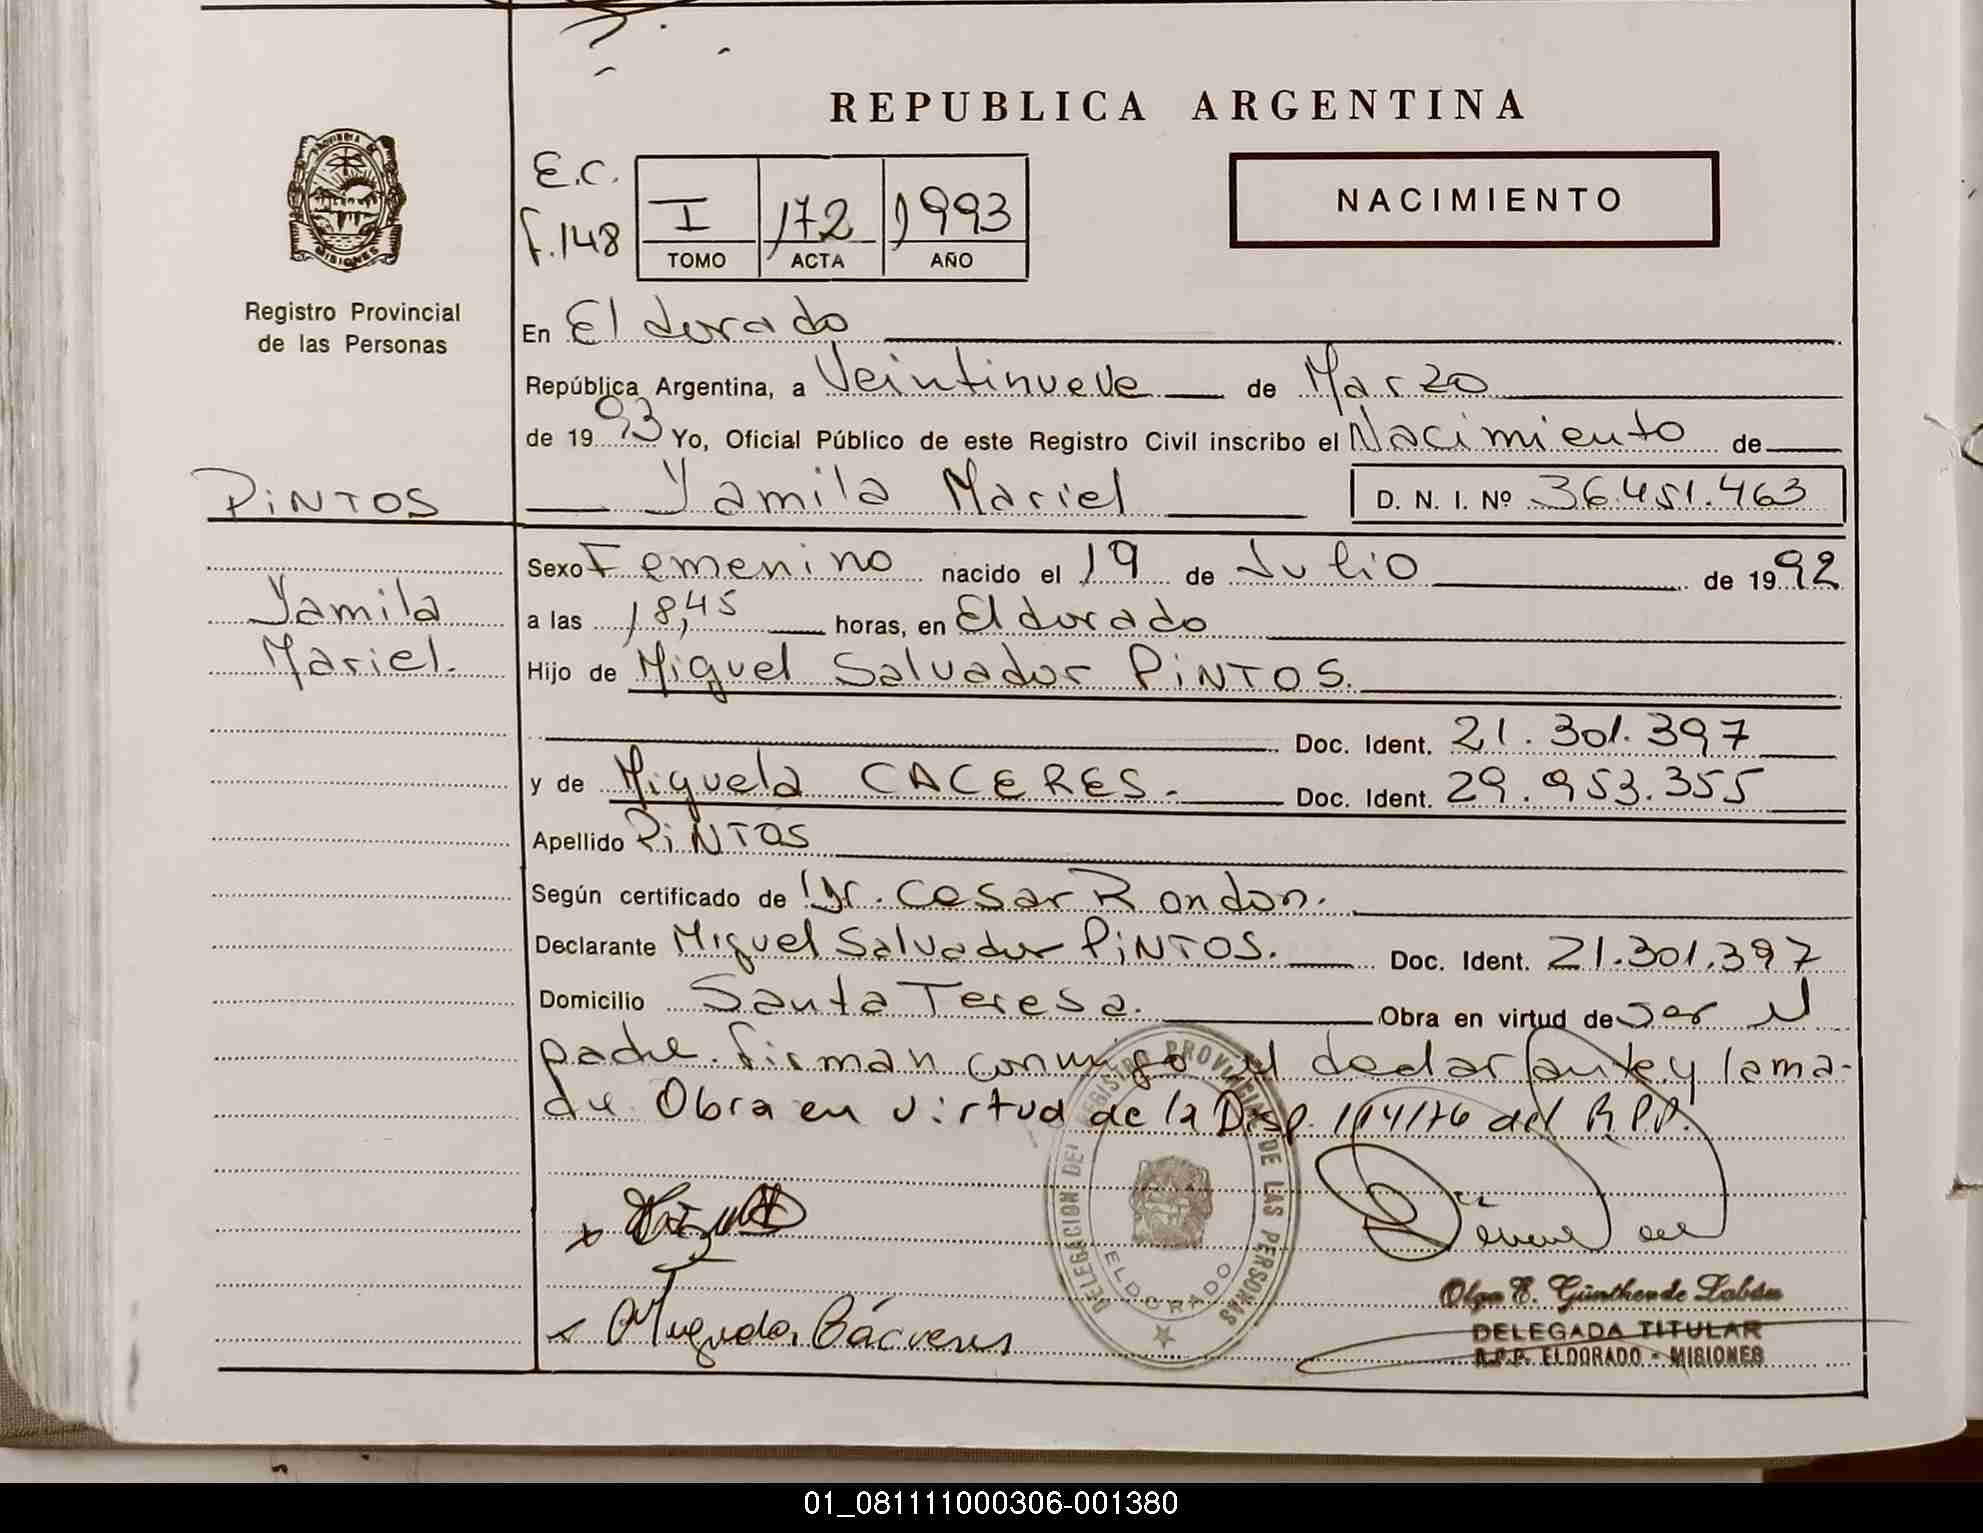 REPUBLICA ARGENTINA
PROVINCIA DE
MISIONES
Registro Provincial
de las Personas
E.C.
F.148
I 172 1993
TOMO ACTA AÑO
NACIMIENTO
En Eldorado
República Argentina, a Veintinueve de Marzo
de 1993 Yo, Oficial Público de este Registro Civil inscribo el Nacimiento de
PiNTOS
Yamila Mariel D. N. I. Nº 36.451.463
Sexo Femenino nacido el 19 de Julio de 1992
Yamila
Mariel.
a las 18,45 horas, en Eldorado
Hijo de Miguel Salvador PiNTOS.
Doc. Ident. 21.301.397
y de Miguela CACERES. Doc. Ident. 29.953.355
Apellido PiNTOS
Según certificado de Dr. Cesar Rondon.
Declarante Miguel Salvador PiNTOS. Doc. Ident. 21.301.397
Domicilio Santa Teresa. Obra en virtud de ser el
padre. Firman conmigo el declarante y la ma-
dre. Obra en virtud de la Disp. 114/76 del R.P.P.
DELEGACION DEL REGISTRO PROVINCIAL DE LAS PERSONAS
ELDORADO
Miguela Cáceres
Olga E. Günther de Labán
DELEGADA TITULAR
R.P.P. ELDORADO - MISIONES
01_081111000306-001380